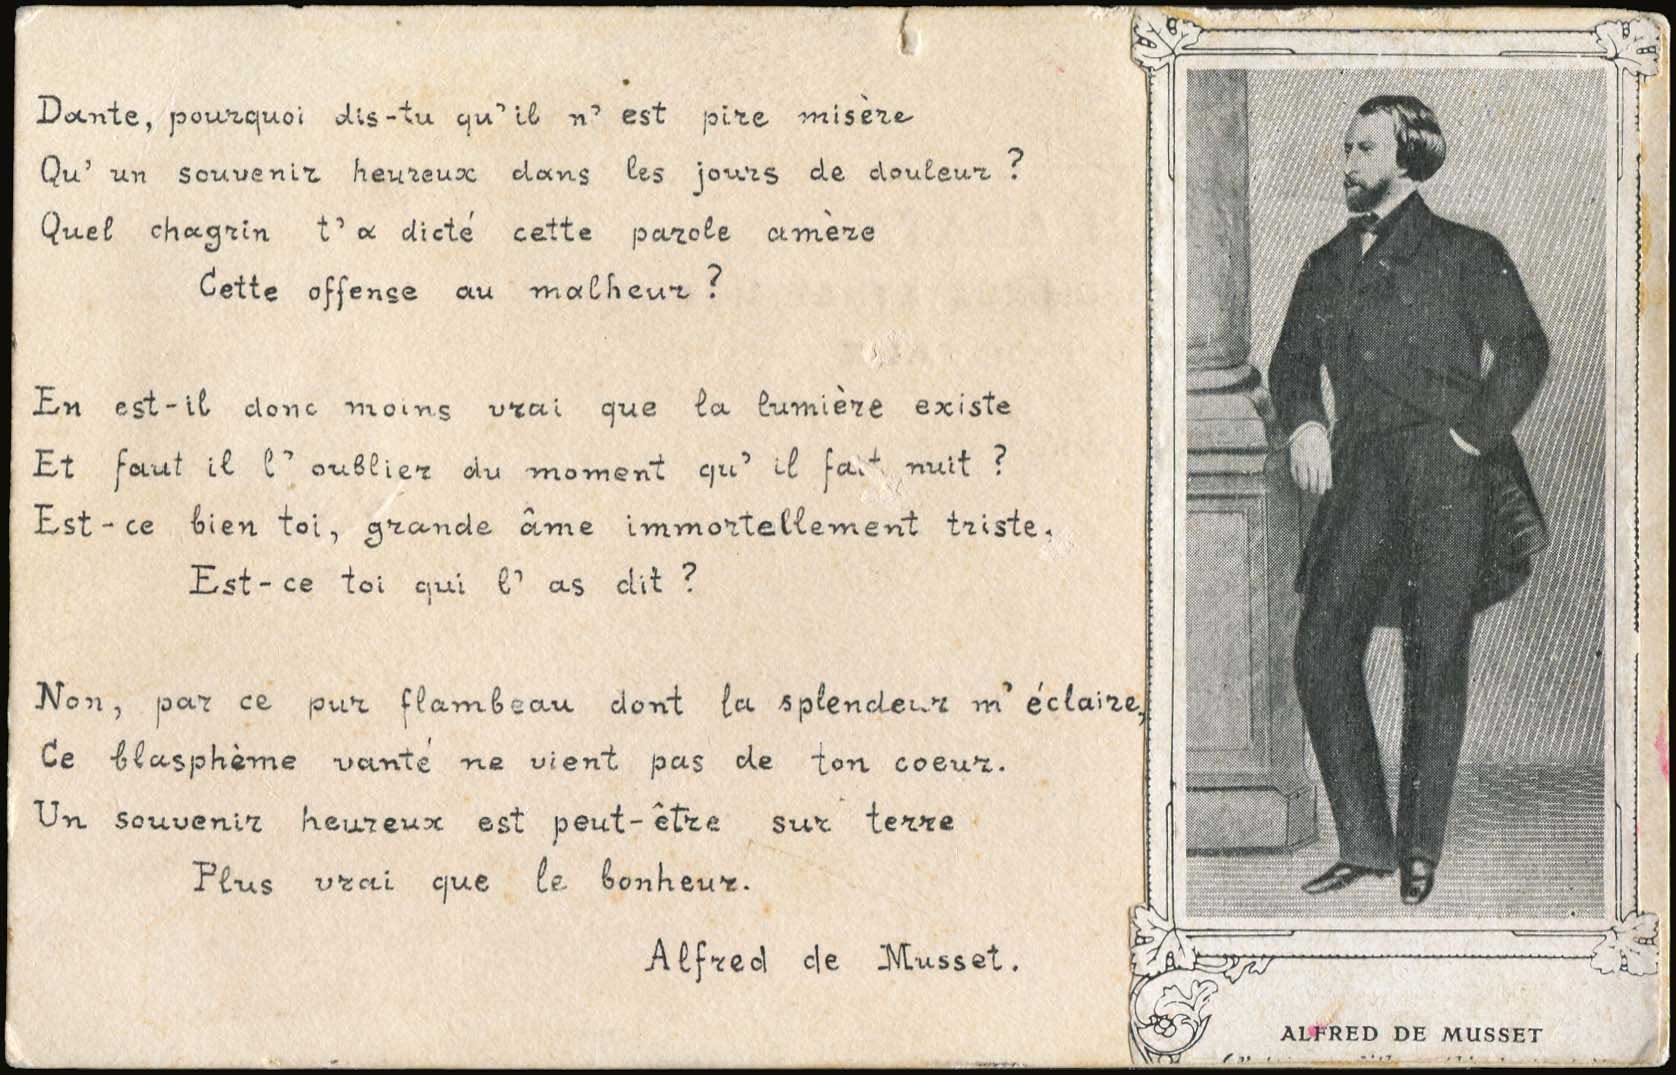 Dante, pourquoi dis-tu qu'il n'est pire misère
Qu'un souvenir heureux dans les jours de douleur ?
Quel chagrin t'a dicté cette parole amère
Cette offense au malheur ?
En est-il donc moins vrai que la lumière existe
Et faut il l'oublier du moment qu'il fait nuit ?
Est-ce bien toi, grande âme immortellement triste,
Est-ce toi qui l'as dit ?
Non, par ce pur flambeau dont la splendeur m'éclaire,
Ce blasphème vanté ne vient pas de ton coeur.
Un souvenir heureux est peut-être sur terre
Plus vrai que le bonheur.
Alfred de Musset.
ALFRED DE MUSSET